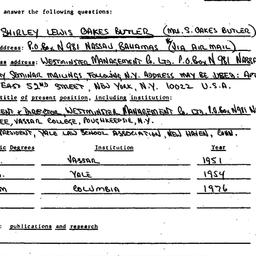 answer the following questions:
SHIRLEY LEWIS OAKES BUTLER (MRS. S. OAKES BUTLER)
address: P.O. Box N 981 NASSAU BAHAMAS (VIA AIR MAIL)
ss address: WESTMINSTER MANAGEMENT Co. LTD. P.O. Box N 981 NASSA
SEMINAR MAILINGS FOLLOWING N.Y. ADDRESS MAY BE USED: APT
EAST 52ND STREET, NEW YORK, N.Y. 10022 U.S.A.
title of present position, including institution:
ENT & DIRECTOR WESTMINSTER MANAGEMENT Co. LTD. P.O. Box N981 N
EE, VASSAR COLLEGE, POUGHKEEPSIE, N.Y.
RESIDENT, YALE LAW SCHOOL ASSOCIATION, NEW HAVEN, CONN.
ic Degrees Institution Year
VASSAR 1951
YALE 1954
M COLUMBIA 1976
publications and research